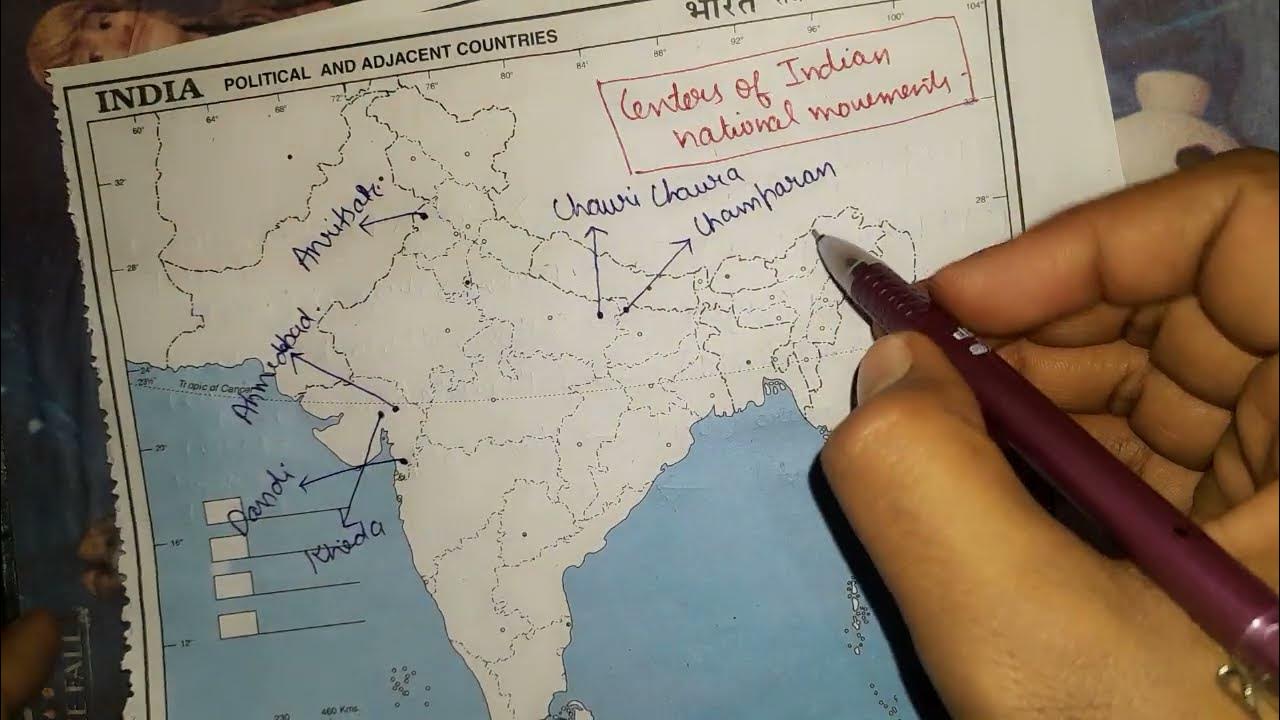 INDIA POLITICAL AND ADJACENT COUNTRIES
भारत
60° 64° 68° 72° 76° 80° 84° 88° 92° 96° 100° 104°
Centers of Indian
national movements
32°
28°
28°
Amritsar
Chauri Chaura
Champaran
Ahmedabad
Tropic of Cancer
Dandi
Kheda
16°
12°
230 460 Kms.
E FALL